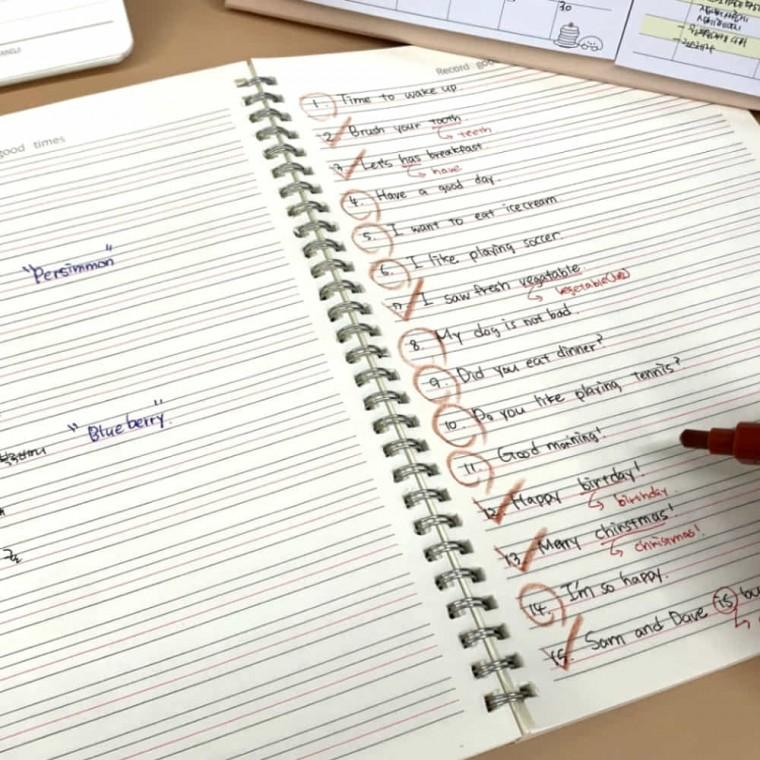 good times
"Persimmon"
"Blueberry".
30
Record goo
1. Time to wake up.
2. Brush your tooth.
teeth
3. Let's has breakfast
have
4. Have a good day.
5. I want to eat icecream.
6. I like playing soccer.
7. I saw fresh vegatable.
vegetable(s)
8. My dog is not bad.
9. Did you eat dinner?
10. Do you like playing tennis?
11. Good morning!
12. Happy birtday!
birthday.
13. Merry chirstmas!
christmas!
14. I'm so happy.
15. Sam and Dave is bu